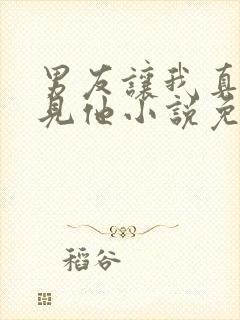 男友讓我真
見他小說免
稻谷